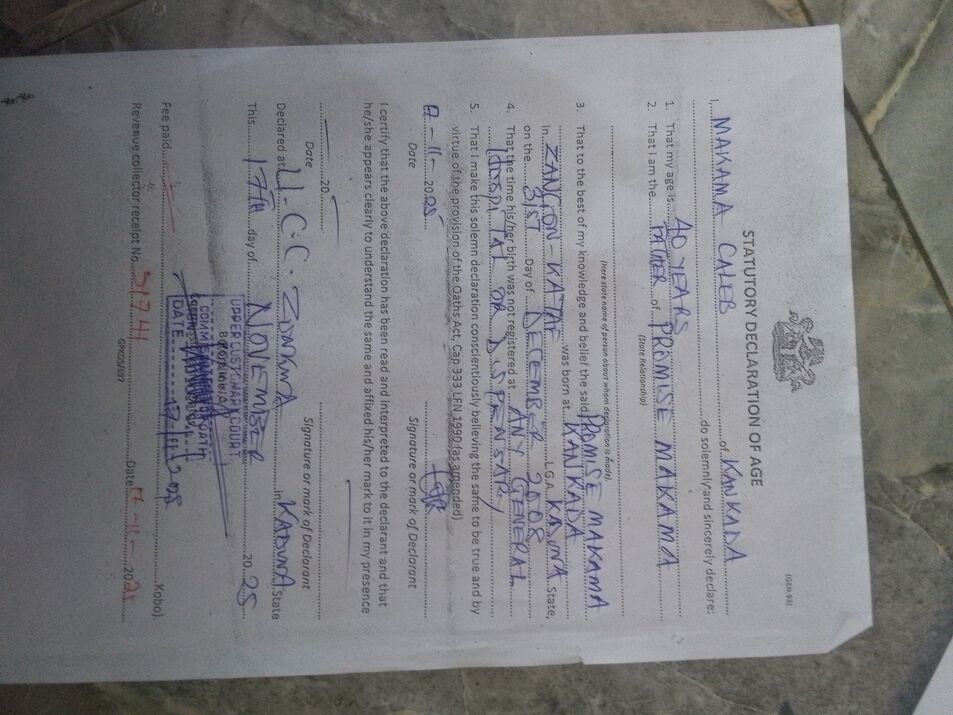 (GEN.93)
STATUTORY DECLARATION OF AGE
I, MAKAMA CALEB of KANKADA
do solemnly and sincerely declare:
1. That my age is 40 YEARS
2. That I am the FATHER of PROMISE MAKAMA
(State Relationship)
(Here state name of person about whom declaration is made).
3. That to the best of my knowledge and belief the said PROMISE MAKAMA
was born at KANKADA
in ZANGON-KATAF L.G.A. KADUNA State,
on the 31ST Day of DECEMBER
4. That the time his/her birth was not registered at ANY GENERAL
HOSPITAL OR DISPENSARY
5. That I make this solemn declaration conscientiously believing the same to be true and by
virtue of the provision of the Oaths Act, Cap 333 LFN 1990 (as amended)
-11-2025
Date Signature or mark of Declarant
I certify that the above declaration has been read and interpreted to the declarant and that
he/she appears clearly to understand the same and affixed his/her mark to it in my presence
20
Date Signature or mark of Declarant
Declared at U.C.C. ZONKWA in KADUNA State
This 17TH day of NOVEMBER 2025
UPPER CUSTOMARY COURT
COMMISSIONER OF OATH
DATE
Fee paid Kobo).
Revenue collector receipt No. 31741 Date 17-11-2025
GPKDS/697